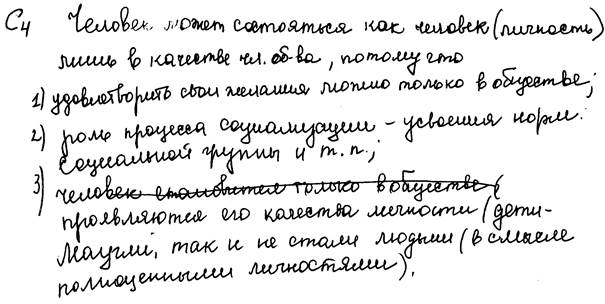 С4 Человек может состояться как человек (личность)
лишь в качестве чл. об-ва, потому что
1) удовлетворить свои желания можно только в обществе;
2) роль процесса социализации – усвоения норм.
социальной группы и т.п.;
3) человек становится только в обществе (
проявляются его качества личности (дети-
Маугли, так и не стали людьми (в смысле
полноценными личностями).